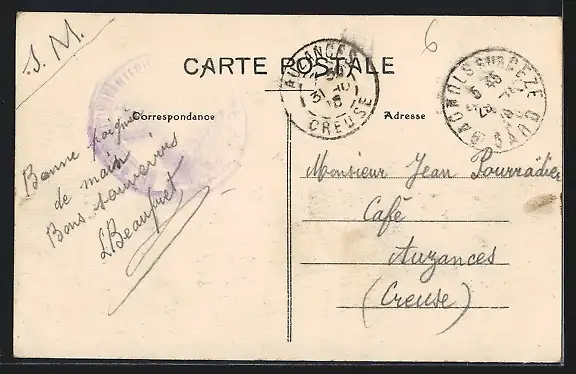 S. M.
6
CARTE POSTALE
AUZANCES
31
CREUSE
BAGNOLS SUR CEZE
5 45
28
GARD
Correspondance
Adresse
Bonne poignée
de main
Bons souvenirs
L Beaufret
Monsieur Jean Pourradier
Café
Auzances
(Creuse)